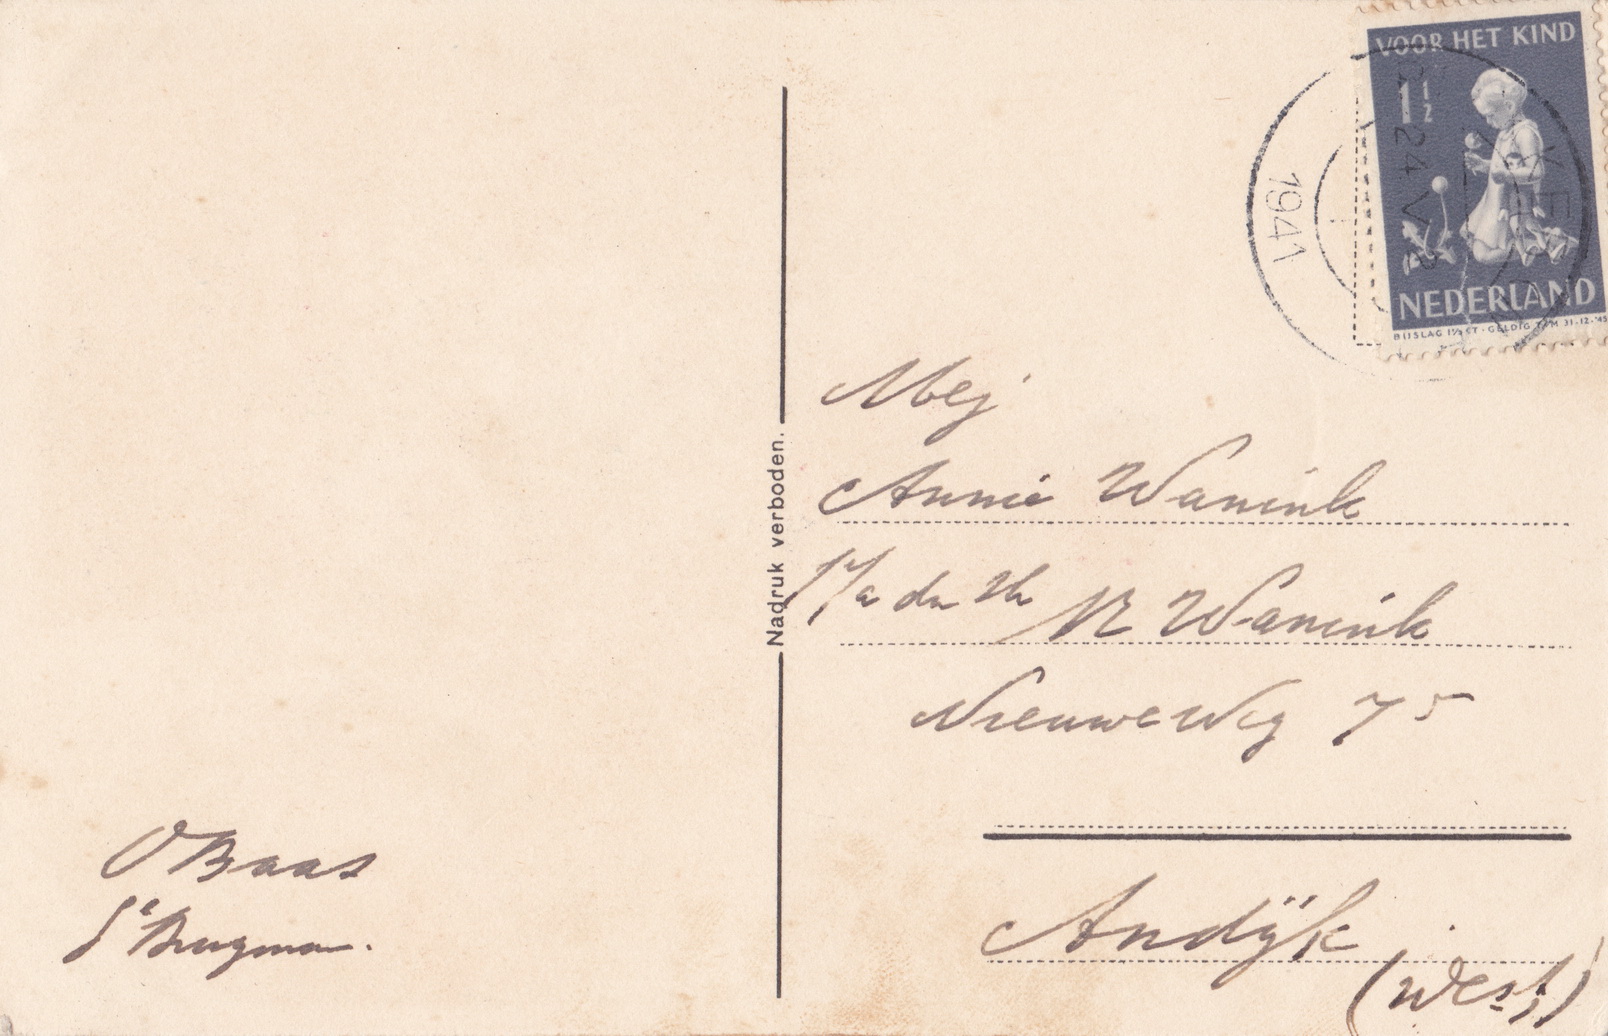 VOOR HET KIND
1 1/2
NEDERLAND
BIJSLAG 1½ CT · GELDIG T/M 31-12-'45
24 V
1941
Nadruk verboden.
Mej
Annie Wanink
Wanink
Nieuweweg 75
Andijk
(West)
O Baas
Brugman.